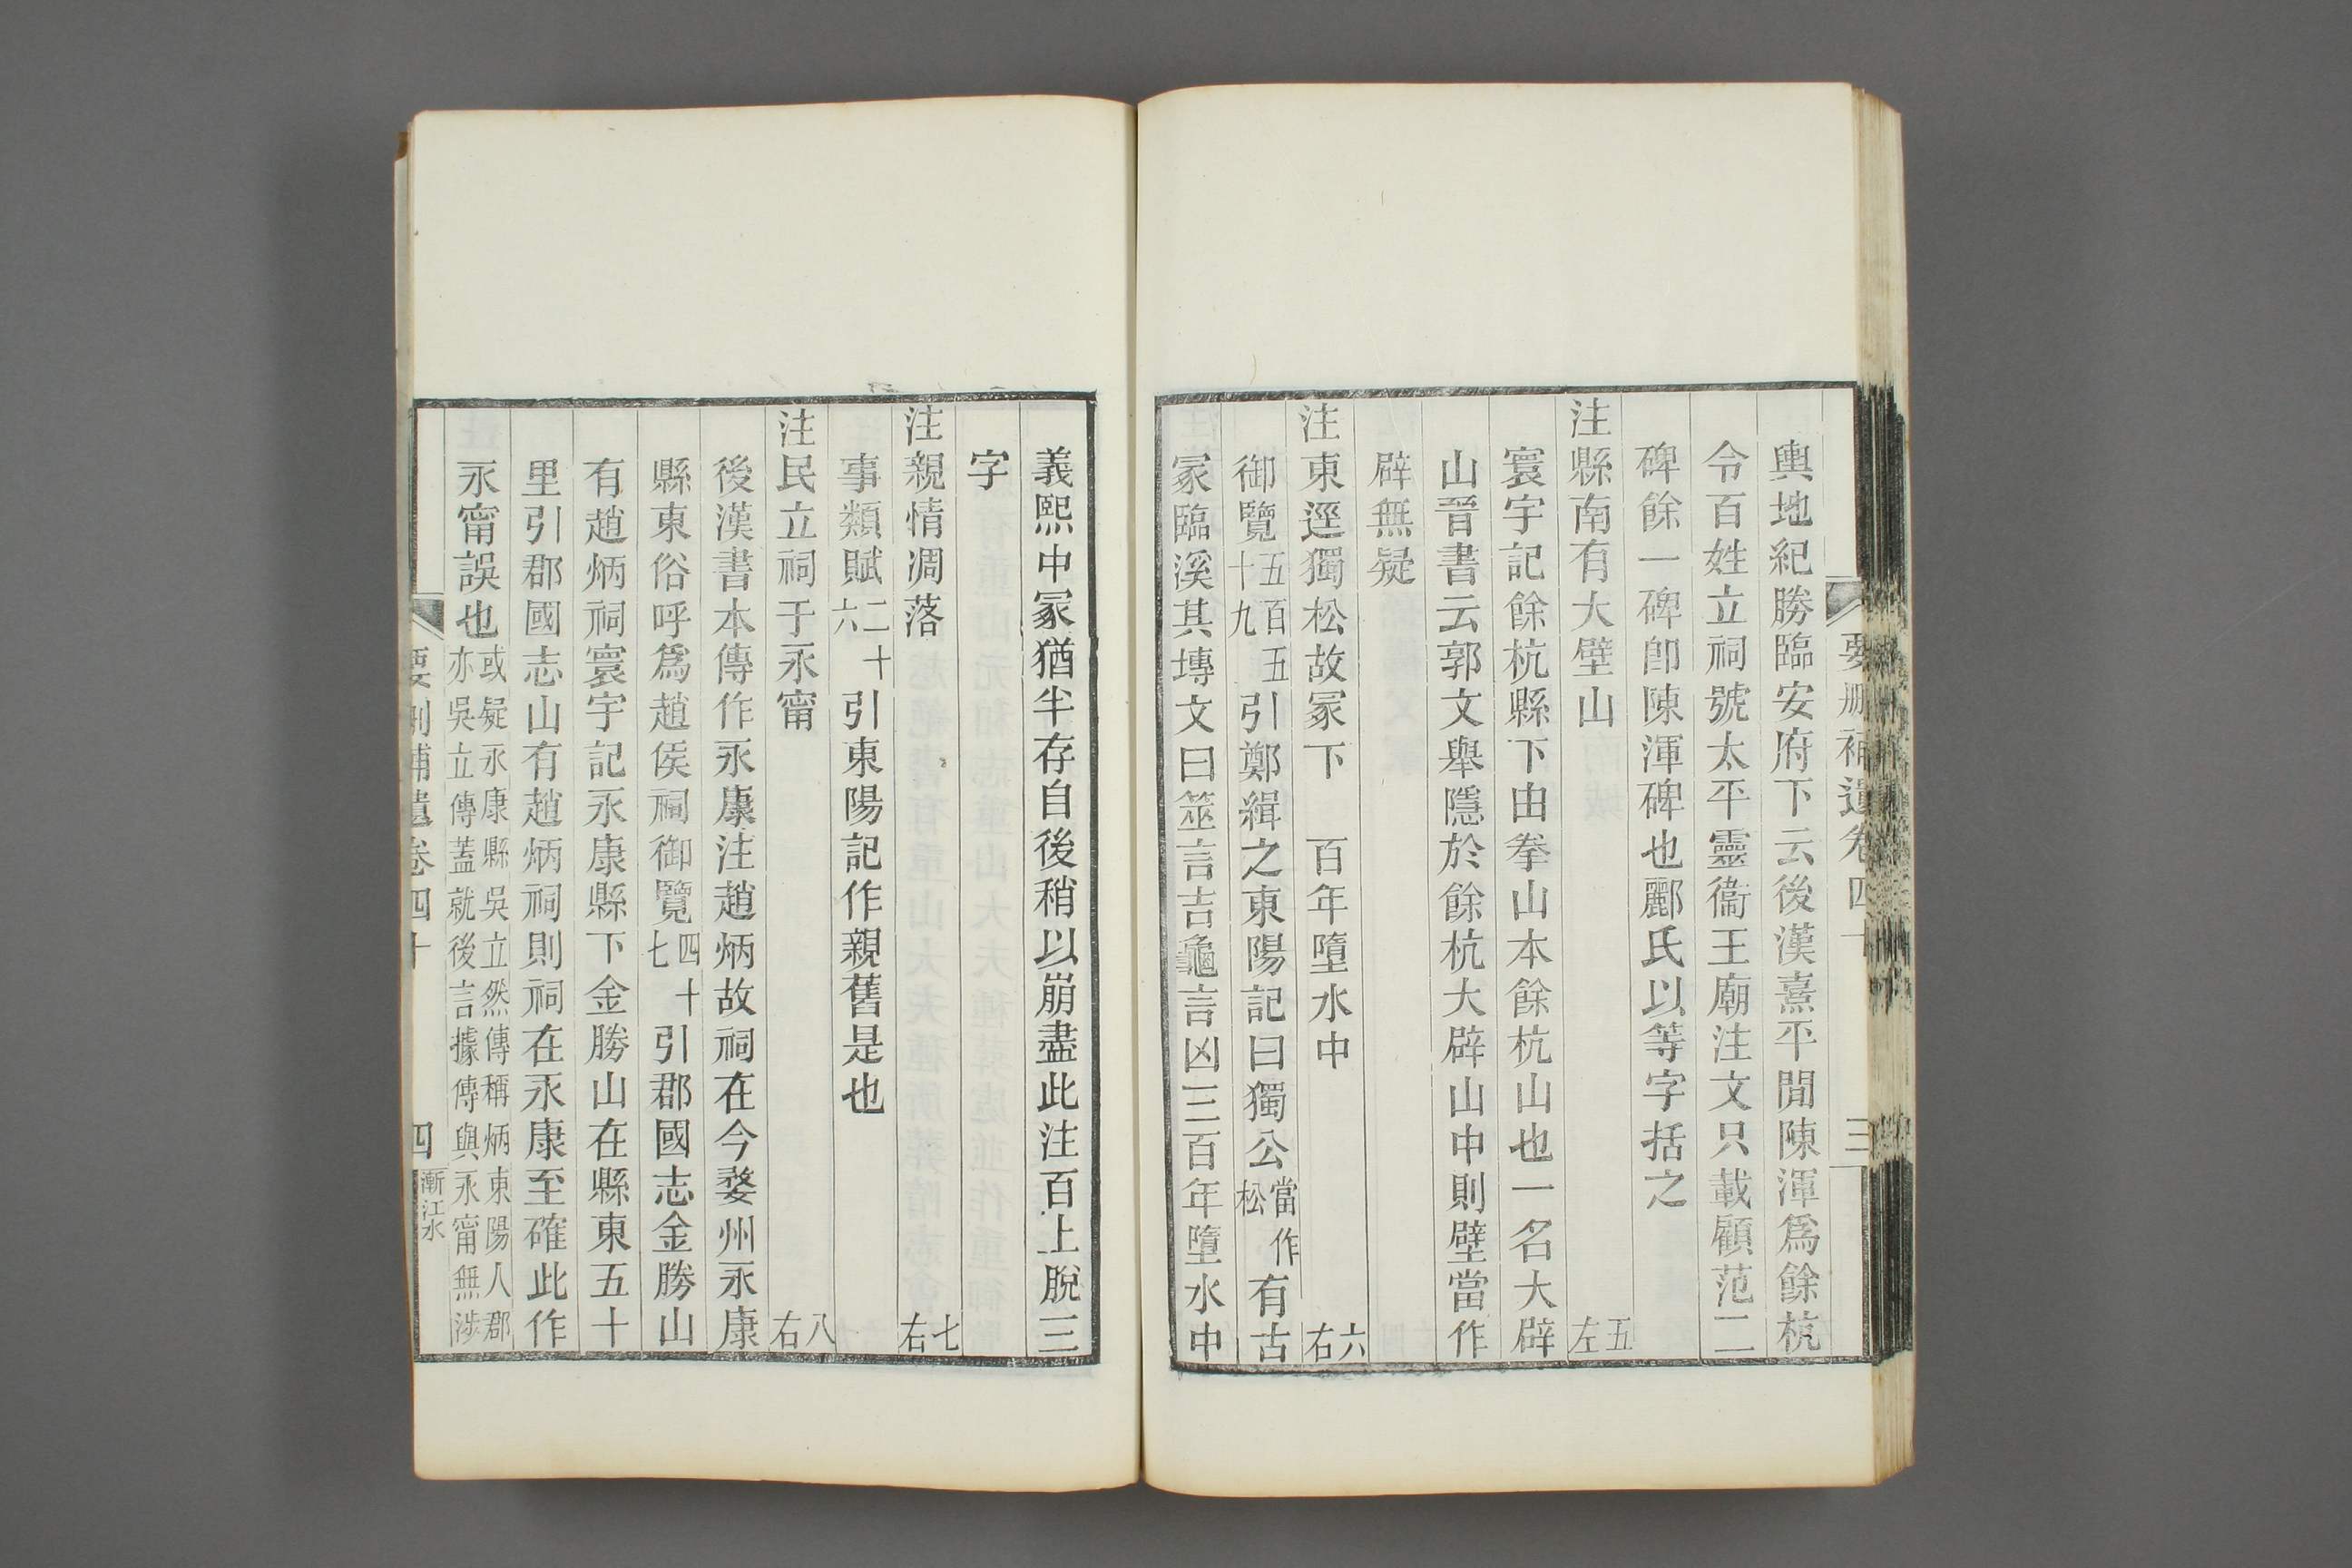 要刪補遺卷四十
三
輿地紀勝臨安府下云後漢熹平閒陳渾爲餘杭
令百姓立祠號太平靈衞王廟注文只載顧范二
碑餘一碑卽陳渾碑也酈氏以等字括之
注縣南有大壁山 五左
寰宇記餘杭縣下由拳山本餘杭山也一名大辟
山晉書云郭文舉隱於餘杭大辟山中則壁當作
辟無疑
注東逕獨松故冢下 百年墮水中 六右
御覽五百五十九引鄭緝之東陽記曰獨公當作松有古
冢臨溪其塼文曰筮言吉龜言凶三百年墮水中
義熙中冢猶半存自後稍以崩盡此注百上脫三
字
注親情凋落 七右
事類賦二十六引東陽記作親舊是也
注民立祠于永甯 八右
後漢書本傳作永康注趙炳故祠在今婺州永康
縣東俗呼爲趙侯祠御覽四十七引郡國志金勝山
有趙炳祠寰宇記永康縣下金勝山在縣東五十
里引郡國志山有趙炳祠則祠在永康至確此作
永甯誤也或疑永康縣吳立然傳稱炳東陽人郡亦吳立傳蓋就後言據傳與永甯無涉
要刪補遺卷四十
四
漸江水